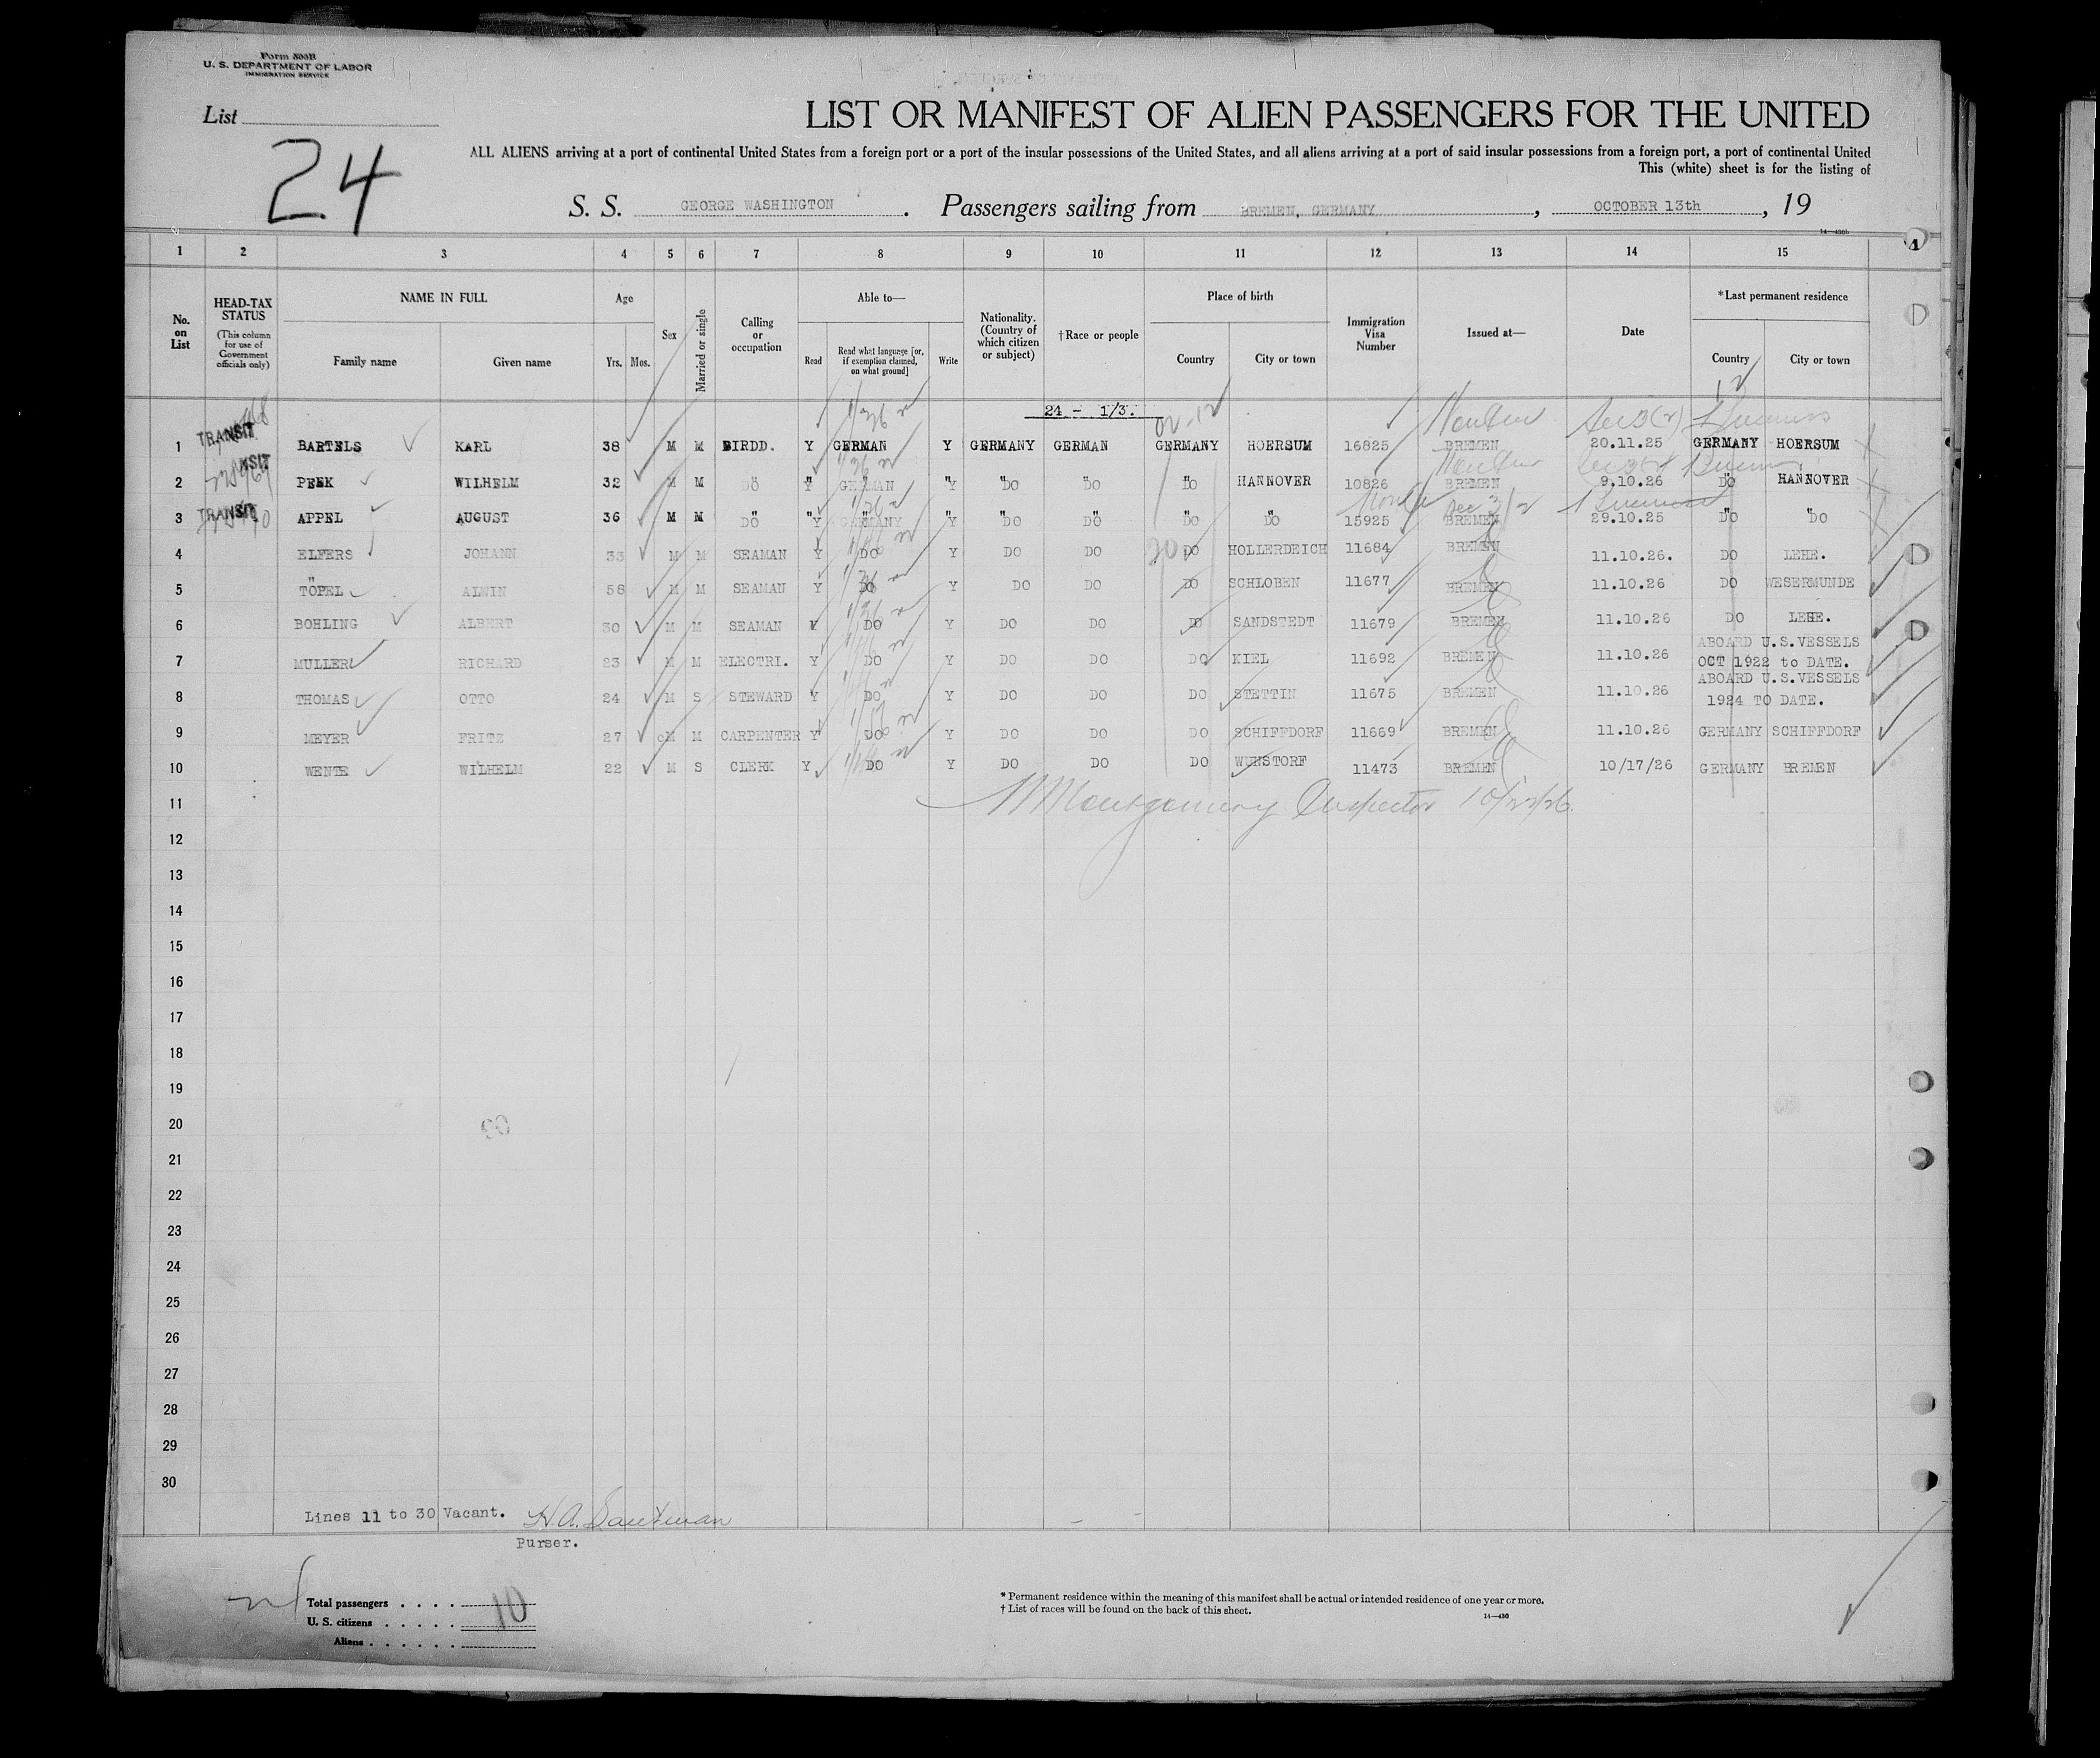 Form 500B
U. S. DEPARTMENT OF LABOR
IMMIGRATION SERVICE
List
24
LIST OR MANIFEST OF ALIEN PASSENGERS FOR THE UNITED
ALL ALIENS arriving at a port of continental United States from a foreign port or a port of the insular possessions of the United States, and all aliens arriving at a port of said insular possessions from a foreign port, a port of continental United
This (white) sheet is for the listing of
S. S. GEORGE WASHINGTON . Passengers sailing from BREMEN, GERMANY , OCTOBER 13th , 19
14—430b
1 2 3 4 5 6 7 8 9 10 11 12 13 14 15
No. on List
HEAD-TAX STATUS (This column for use of Government officials only)
NAME IN FULL
Family name Given name
Age
Yrs. Mos.
Sex
Married or single
Calling or occupation
Able to—
Read Read what language [or, if exemption claimed, on what ground] Write
Nationality. (Country of which citizen or subject)
†Race or people
Place of birth
Country City or town
Immigration Visa Number
Issued at—
Date
*Last permanent residence
Country City or town
24 - 1/3.
1 TRANSIT BARTELS KARL 38 M M BIRDD. Y GERMAN Y GERMANY GERMAN GERMANY HOERSUM 16825 BREMEN 20.11.25 GERMANY HOERSUM
2 PEEK WILHELM 32 M M DO Y GERMAN Y DO DO DO HANNOVER 10826 BREMEN 9.10.26 DO HANNOVER
3 TRANSIT APPEL AUGUST 36 M M DO Y GERMANY Y DO DO DO DO 15925 BREMEN 29.10.25 DO DO
4 ELFERS JOHANN 33 M M SEAMAN Y DO Y DO DO DO HOLLERDEICH 11684 BREMEN 11.10.26. DO LEHE.
5 TÖPEL ALWIN 58 M M SEAMAN Y DO Y DO DO DO SCHLOBEN 11677 BREMEN 11.10.26 DO WESERMUNDE
6 BOHLING ALBERT 30 M M SEAMAN Y DO Y DO DO DO SANDSTEDT 11679 BREMEN 11.10.26 DO LEHE.
7 MULLER RICHARD 23 M M ELECTRI. Y DO Y DO DO DO KIEL 11692 BREMEN 11.10.26 ABOARD U.S.VESSELS OCT 1922 to DATE.
8 THOMAS OTTO 24 M S STEWARD Y DO Y DO DO DO STETTIN 11675 BREMEN 11.10.26 ABOARD U.S.VESSELS 1924 TO DATE.
9 MEYER FRITZ 27 M M CARPENTER Y DO Y DO DO DO SCHIFFDORF 11669 BREMEN 11.10.26 GERMANY SCHIFFDORF
10 WENTE WILHELM 22 M S CLERK Y DO Y DO DO DO WUNSTORF 11473 BREMEN 10/17/26 GERMANY BREMEN
11 Montgomery Inspector
12
13
14
15
16
17
18
19
20
21
22
23
24
25
26
27
28
29
30
Lines 11 to 30 Vacant. H.A.
Purser.
Total passengers . . . . 10
U. S. citizens . . . . .
Aliens . . . . . .
* Permanent residence within the meaning of this manifest shall be actual or intended residence of one year or more.
† List of races will be found on the back of this sheet.
14—430